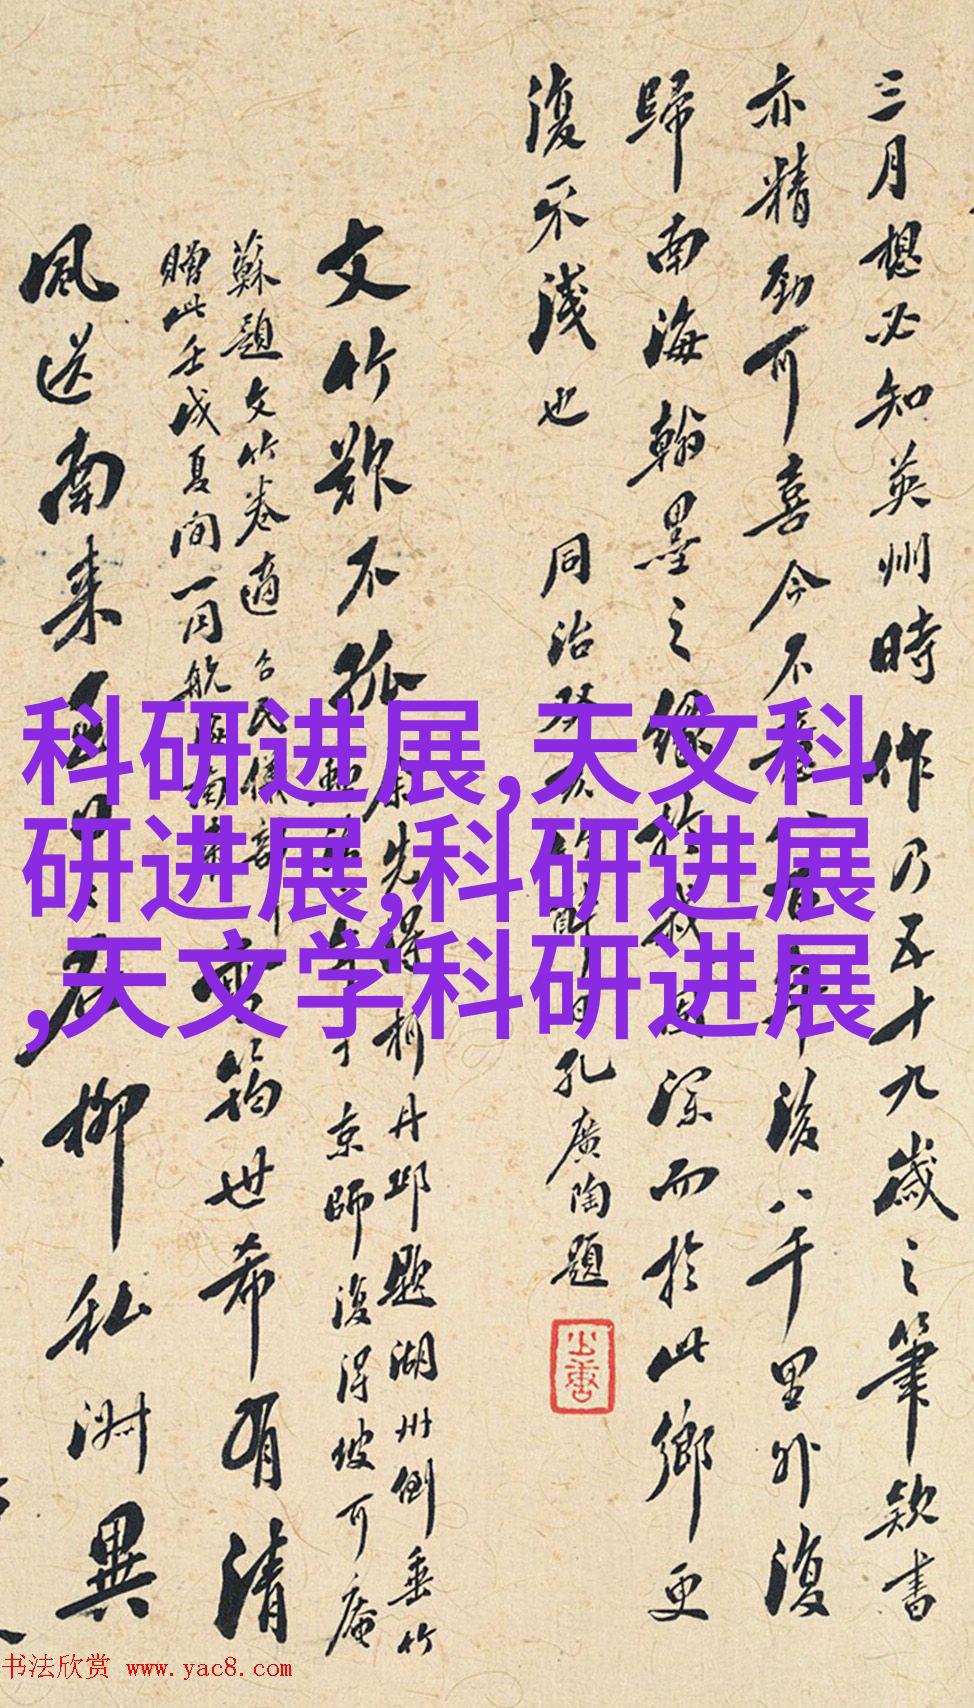 三月想必知英州時作乃五十九歲之筆款書
亦精勁可喜今不意八百年後八千里外復
歸南海翰墨之緣於叔固深而於此鄉更
復不淺也
同治癸亥
孔廣陶題
文竹欺不孤
余先得柯丹邱題湖州倒垂竹
京師復得坡可庵
雪筠世希有清
蘇題文竹卷適
贈此壬戌夏間一同航
風送南來
柳私淑異
科研进展,天文科
研进展,科研进展
,天文学科研进展
书法欣赏 www.yac8.com